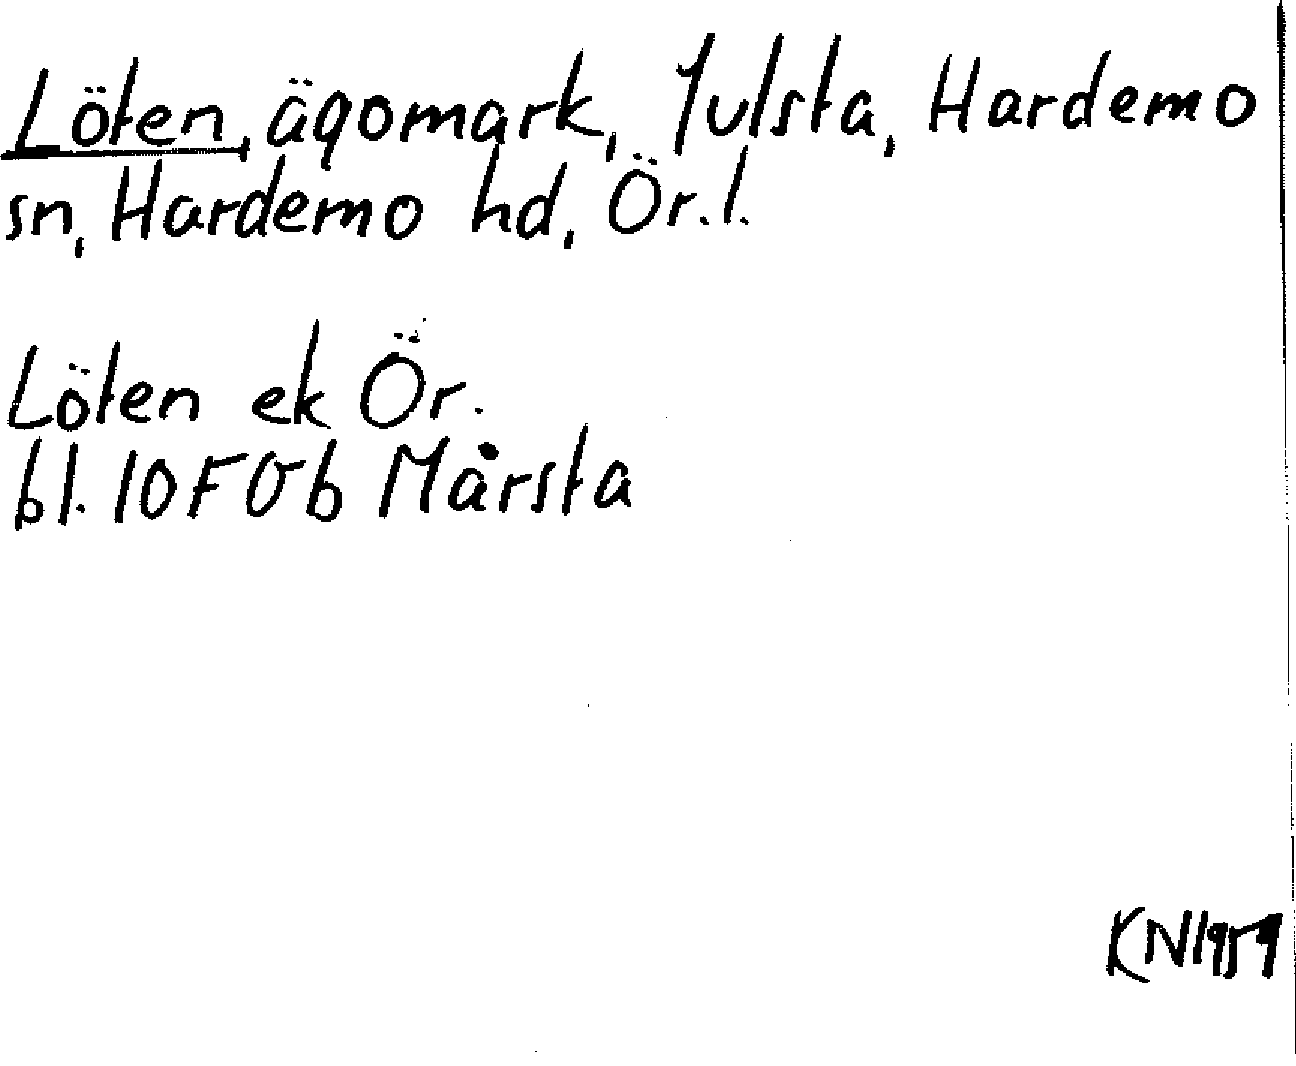 Löten, ägomark, Julsta, Hardemo
sn, Hardemo hd, Ör.l.
Löten ek Ör.
bl. 10F0b Mårsta
KN 1959